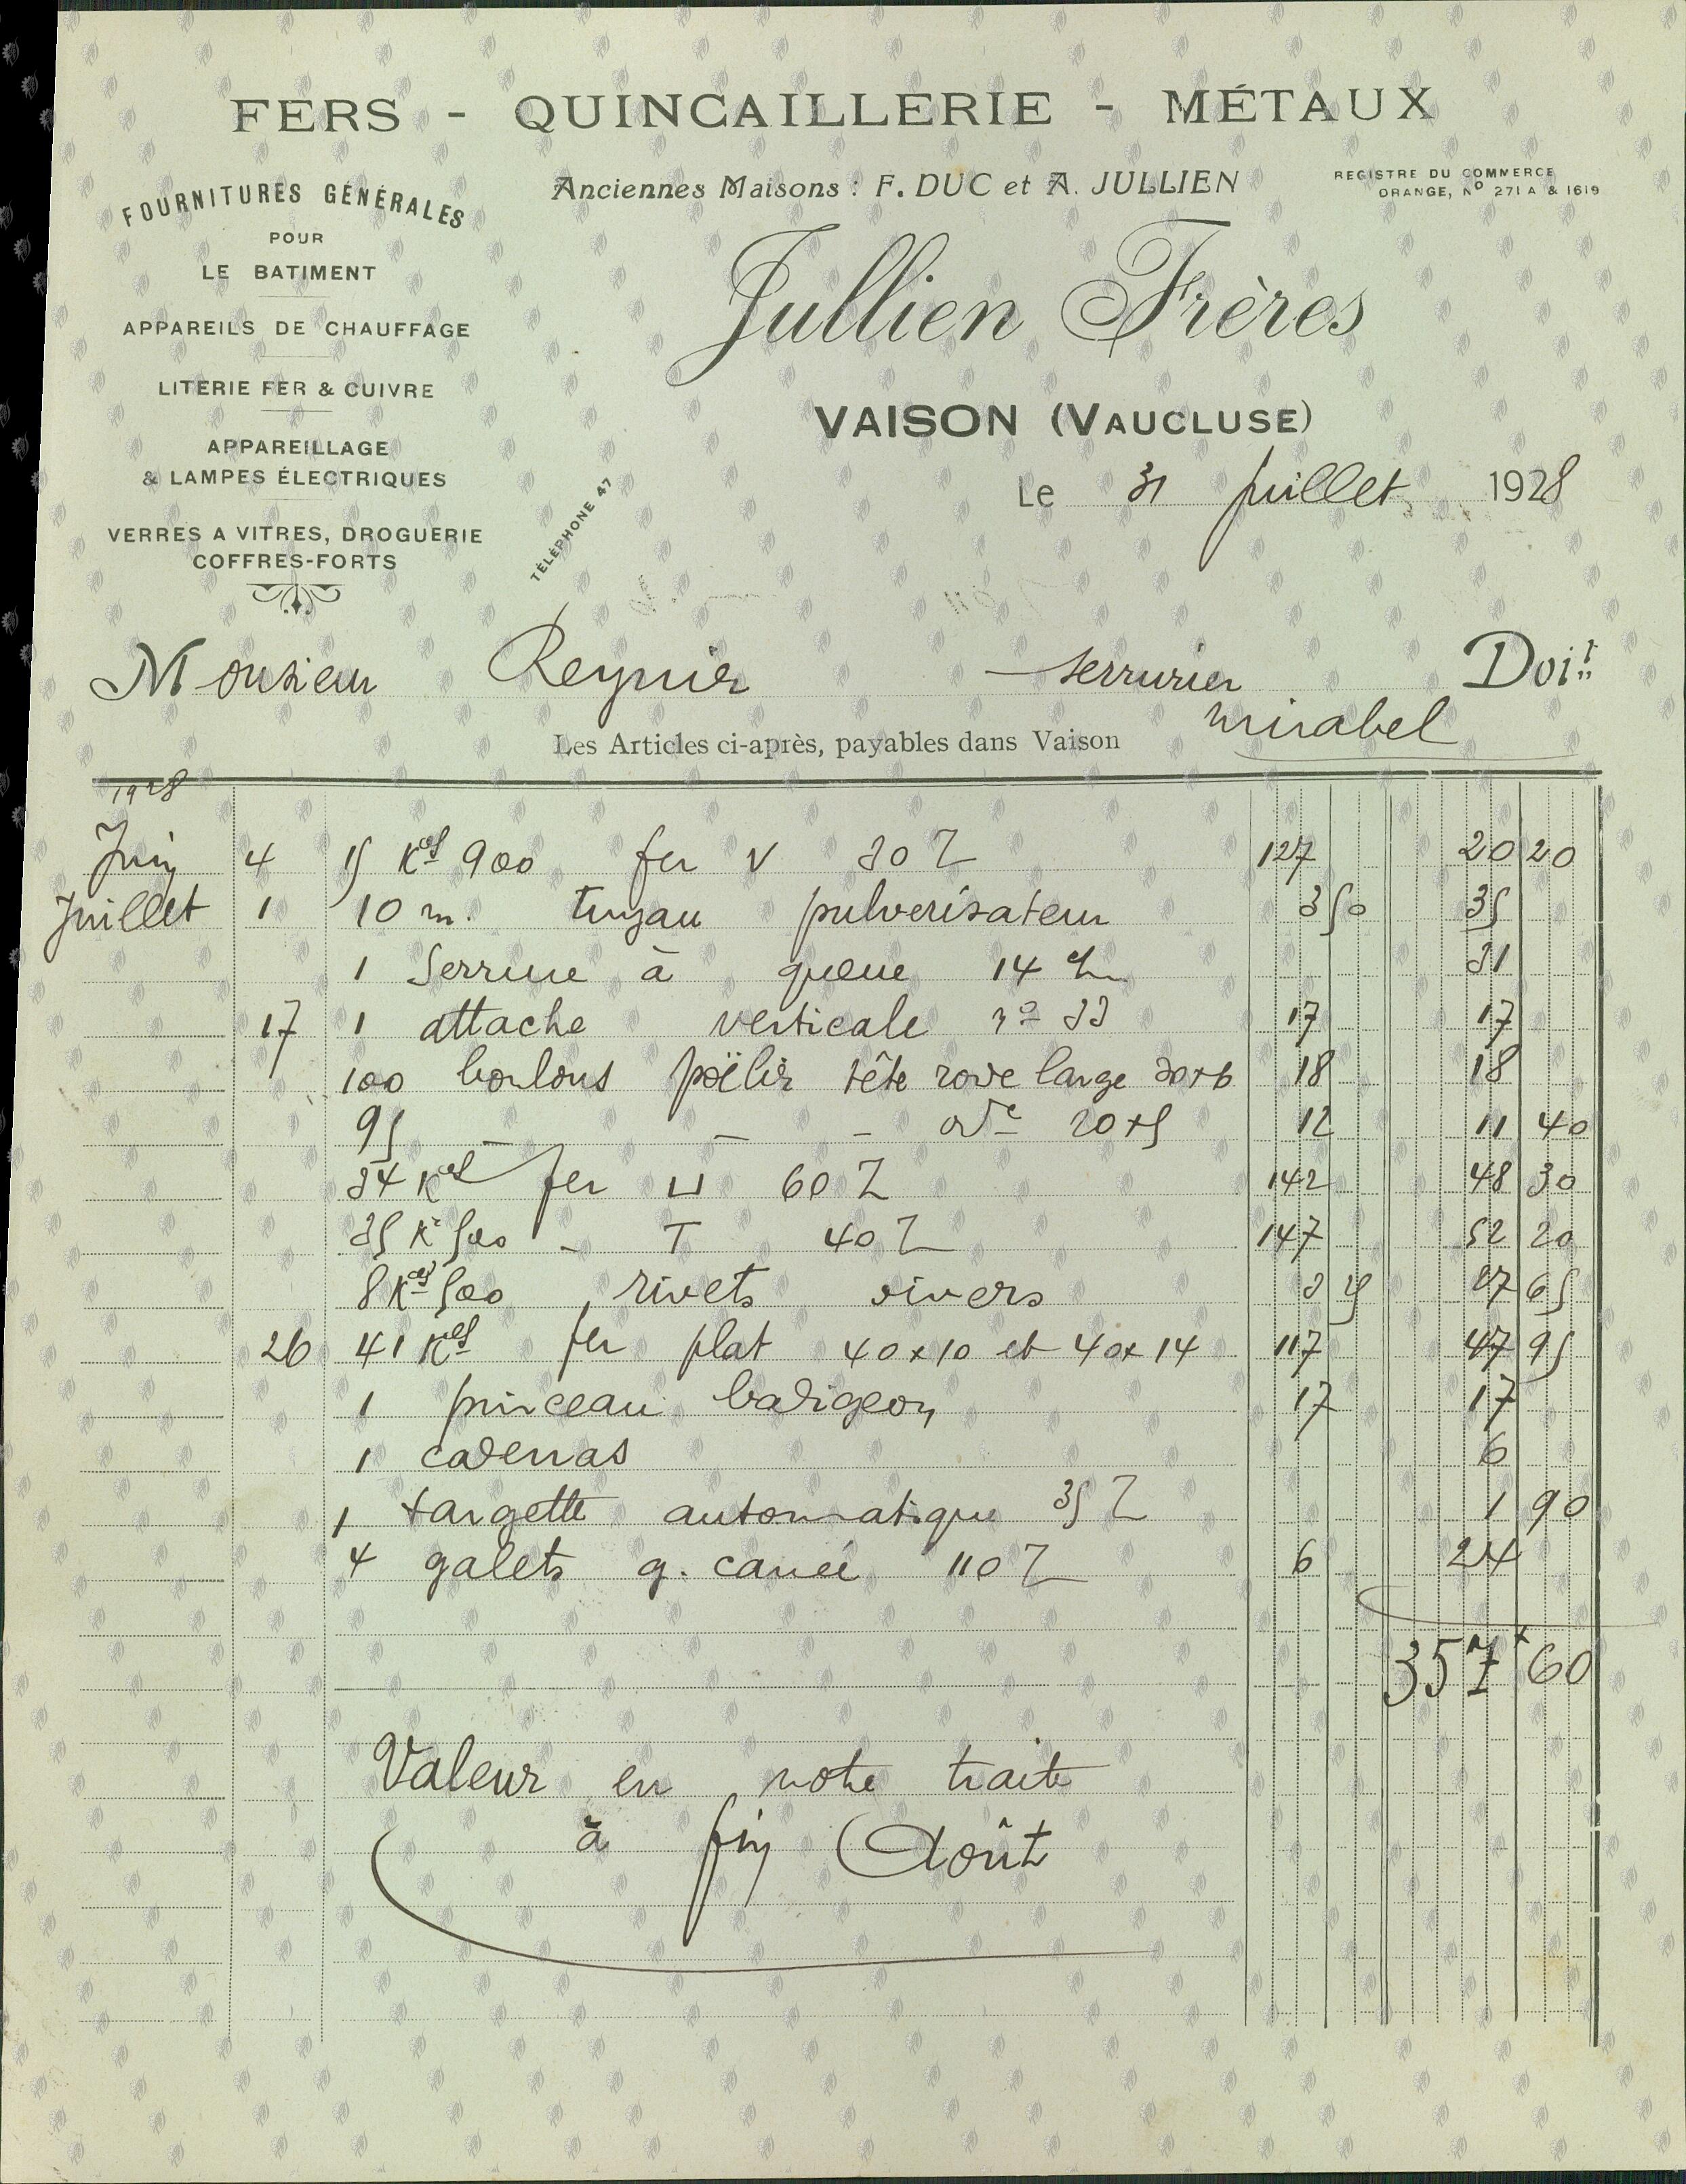 FERS - QUINCAILLERIE - MÉTAUX
Anciennes Maisons : F. DUC et A. JULLIEN
REGISTRE DU COMMERCE
ORANGE, No 271 A & 1619
FOURNITURES GÉNÉRALES
POUR
LE BATIMENT
APPAREILS DE CHAUFFAGE
LITERIE FER & CUIVRE
APPAREILLAGE
& LAMPES ÉLECTRIQUES
VERRES A VITRES, DROGUERIE
COFFRES-FORTS
TÉLÉPHONE 47
Jullien Frères
VAISON (VAUCLUSE)
Le 31 Juillet 1928
Monsieur Reynier serrurier Doit
mirabel
Les Articles ci-après, payables dans Vaison
1928
Juin 4 15 Kos 900 fer V 30 127 20 20
Juillet 1 10 m. tuyau pulverisateur 3 50 35
1 Serrure à queue 14 31
17 1 attache verticale no 33 17 17
100 boulons poëlier tête rode large 30x6 18 18
95 - - - ode 20x5 12 11 40
34 Kos fer U 60 142 48 30
35 Ko 500 - T 40 147 52 20
8 Kos 500 rivets divers 3 25 27 65
26 41 Kos fer plat 40x10 et 40x14 117 47 95
1 pinceau badigeon 17 17
1 cadenas 6
1 targette automatique 35 1 90
4 galets g. carrée 110 6 24
357 60
Valeur en notre traite
à fin Août